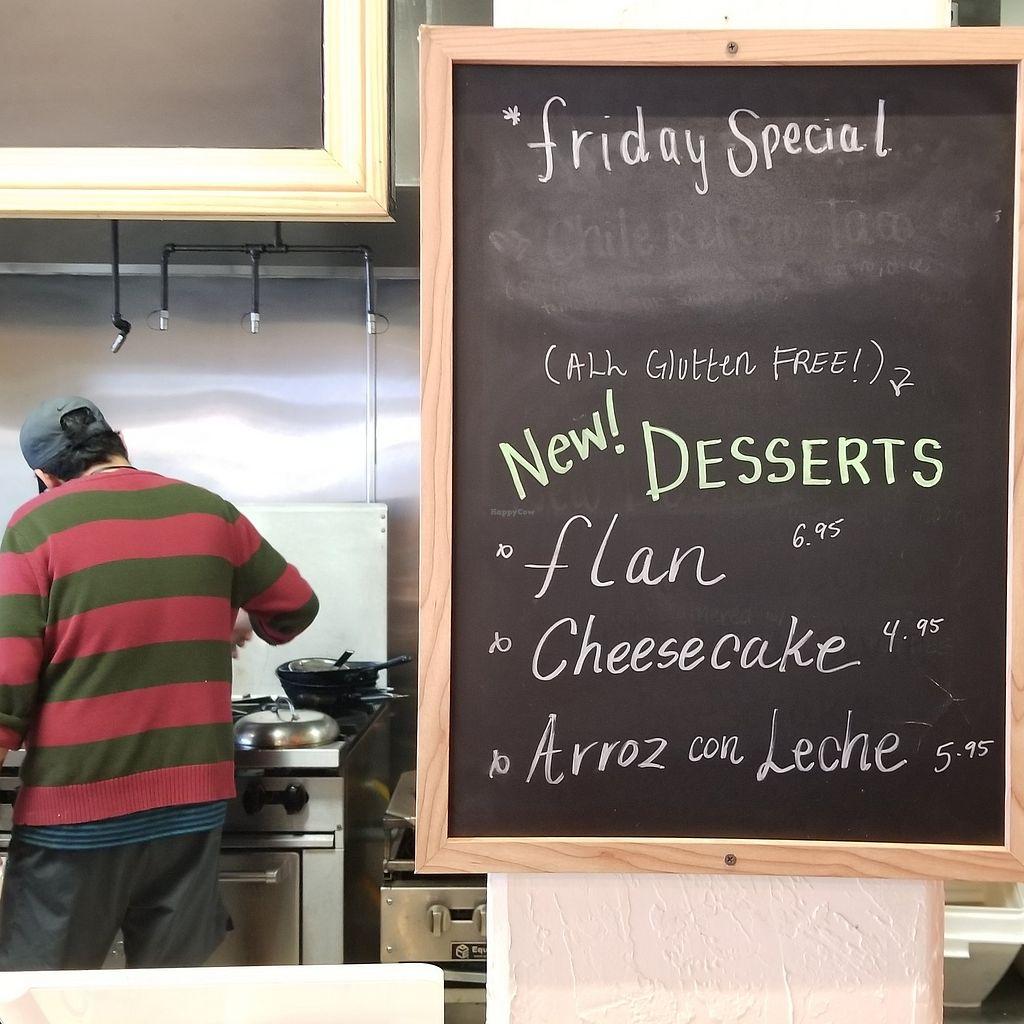 *friday Special
Chile
(ALL Glutten FREE!)
New! DESSERTS
HappyCow
flan 6.95
Cheesecake 4.95
Arroz con Leche 5.95